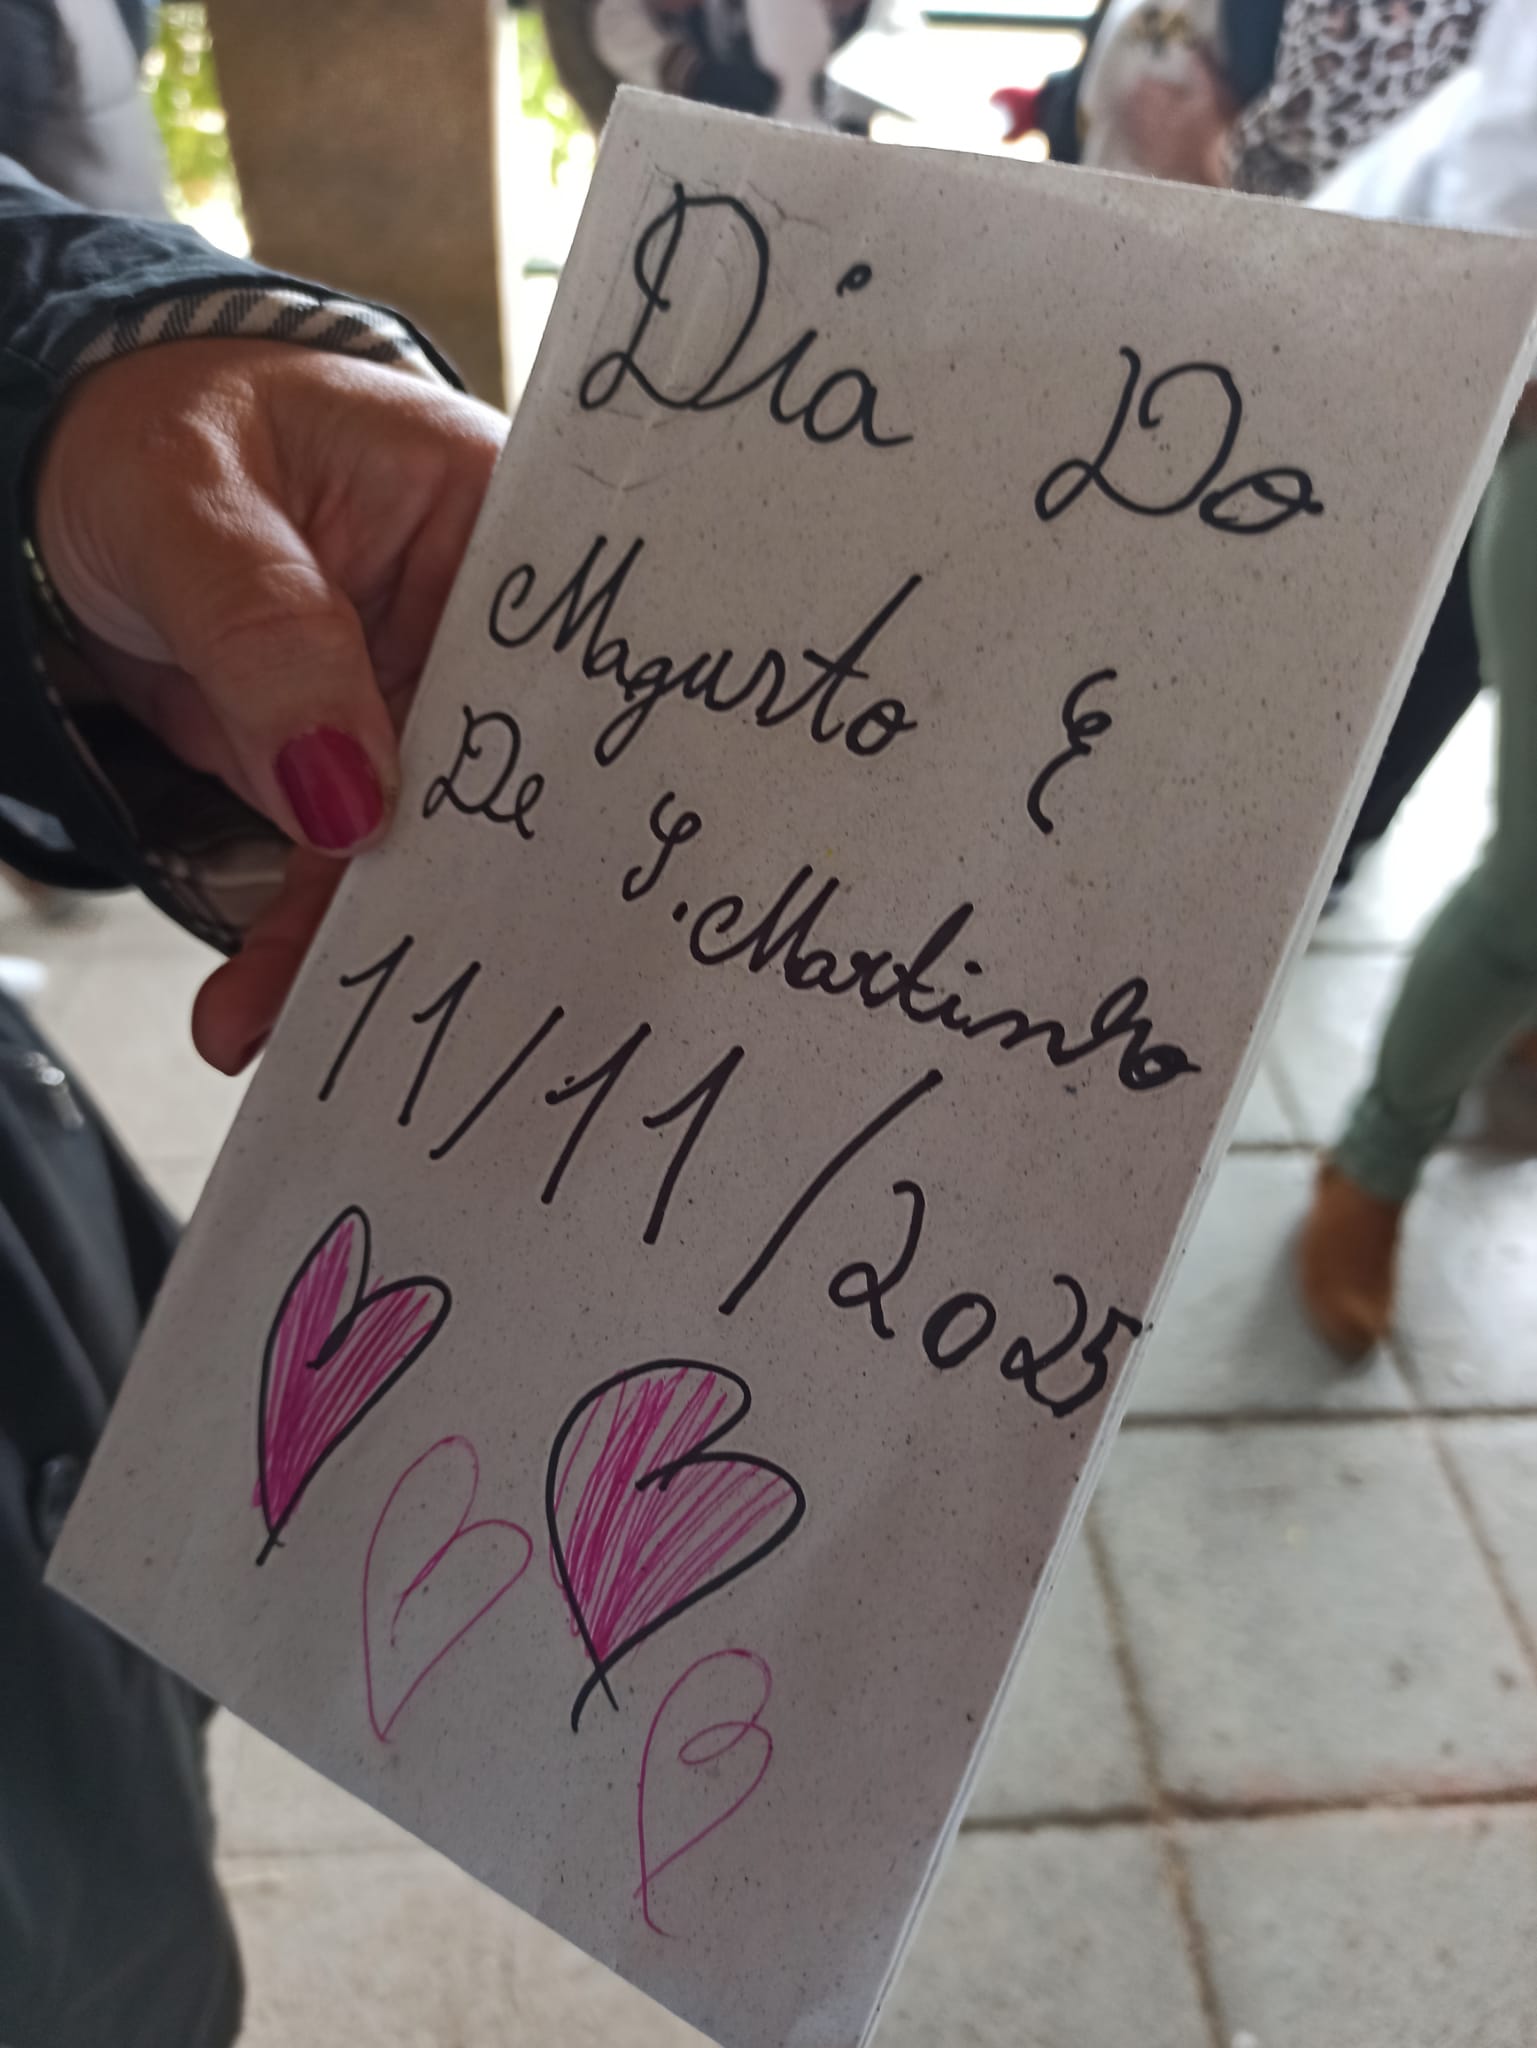 Dia Do
Magusto &
De S. Martinho
11/11/2025